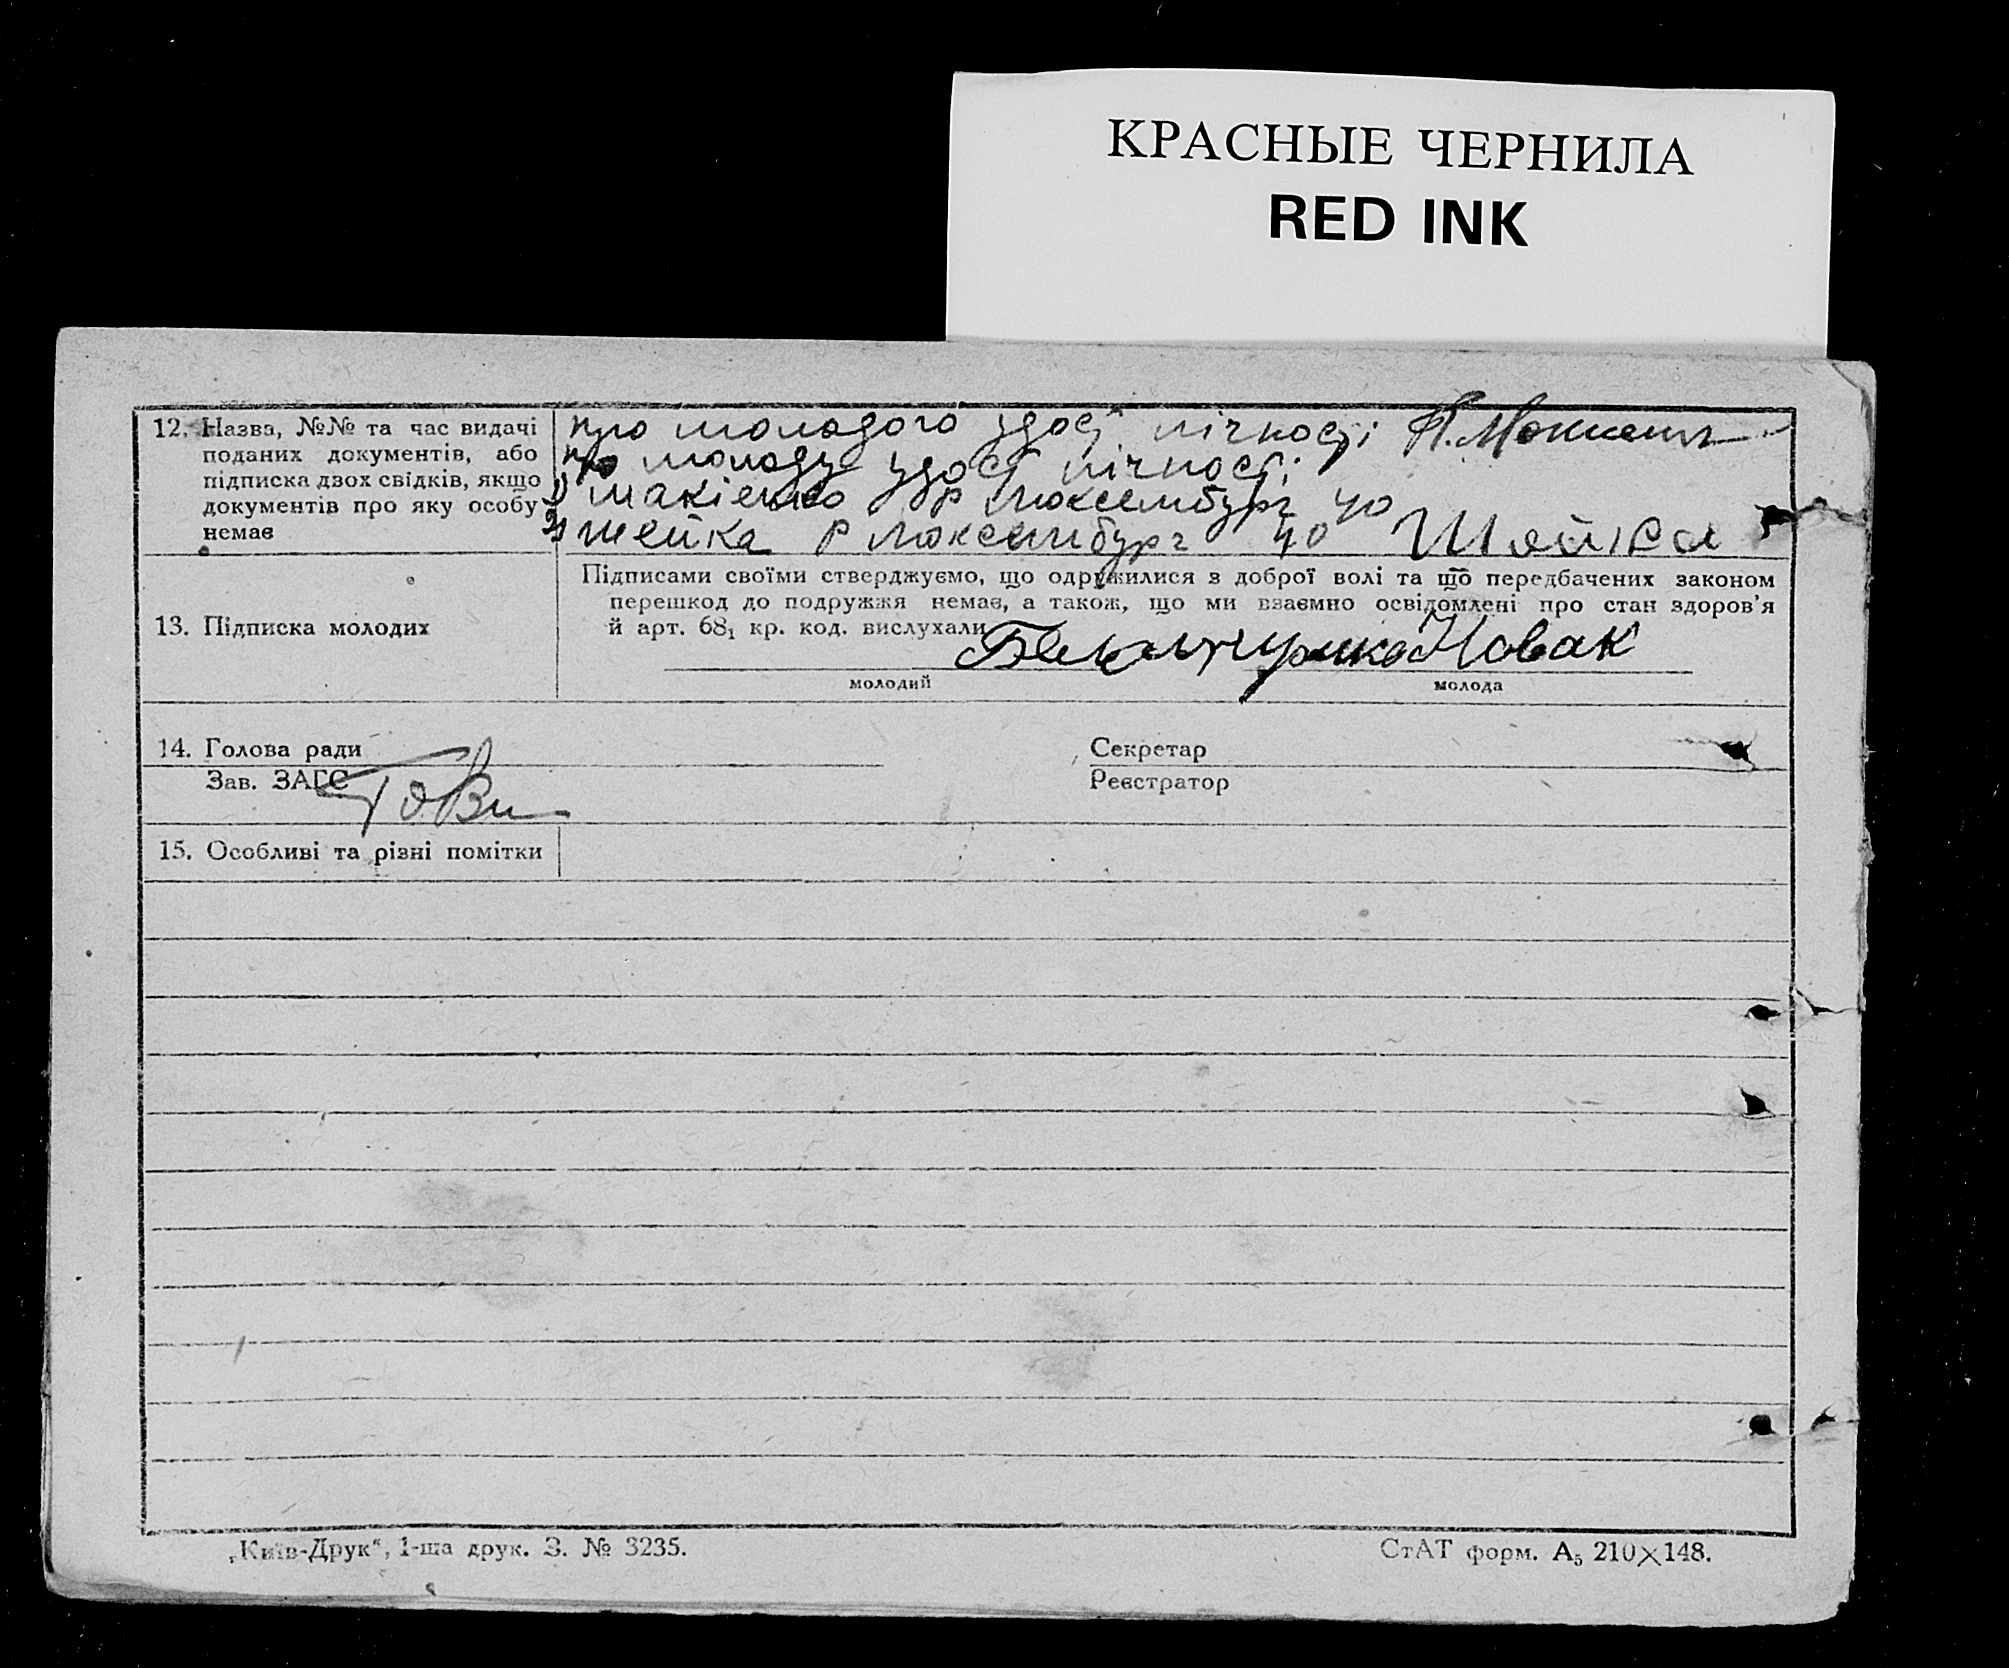 КРАСНЫЕ ЧЕРНИЛА
RED INK
12. Назва, №№ та час видачі
поданих документів, або
підписка двох свідків, якщо
документів про яку особу
немає
про молодого удост. лічності
про молоду удост лічності
1) Макієнко Р Люксембург 40
2) Шейка Р Люксембург 40 Шейка
13. Підписка молодих
Підписами своїми стверджуємо, що одружилися з доброї волі та що передбачених законом
перешкод до подружжя немає, а також, що ми взаємно освідомлені про стан здоров'я
й арт. 68₁ кр. код. вислухали
Новак
молодий
молода
14. Голова ради
Секретар
Зав. ЗАГС
Реєстратор
15. Особливі та різні помітки
„Київ-Друк“, 1-ша друк. З. № 3235.
СтАТ форм. А₅ 210×148.